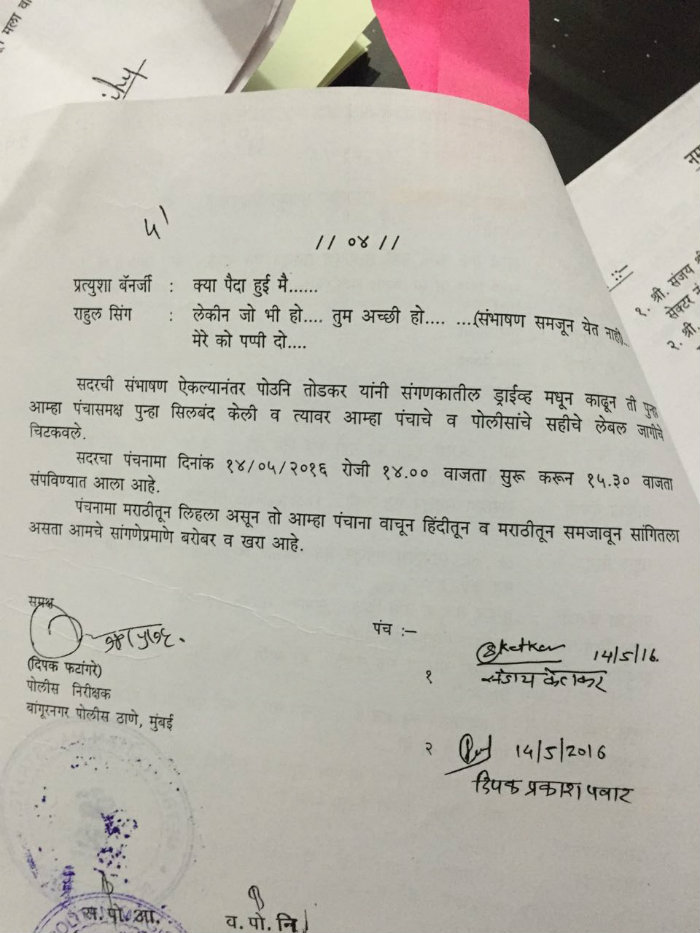 मला वा
५१
// ०४ //
प्रत्युशा बॅनर्जी : क्या पैदा हुई मै......
राहुल सिंग : लेकीन जो भी हो.... तुम अच्छी हो.... ....(संभाषण समजून येत नाही)..
मेरे को पप्पी दो....
सदरची संभाषण ऐकल्यानंतर पोउनि तोडकर यांनी संगणकातील ड्राईव्ह मधून काढून ती पुन्हा
आम्हा पंचासमक्ष पुन्हा सिलबंद केली व त्यावर आम्हा पंचाचे व पोलीसांचे सहीचे लेबल जागीचे
चिटकवले.
सदरचा पंचनामा दिनांक १४/०५/२०१६ रोजी १४.०० वाजता सुरू करून १५.३० वाजता
संपविण्यात आला आहे.
पंचनामा मराठीतून लिहला असून तो आम्हा पंचाना वाचून हिंदीतून व मराठीतून समजावून सांगितला
असता आमचे सांगणेप्रमाणे बरोबर व खरा आहे.
समक्ष
(दिपक फटांगरे)
पोलीस निरीक्षक
बांगूरनगर पोलीस ठाणे, मुंबई
पंच :–
Sketkar 14/5/16.
१ संजय केतकर
२ 14/5/2016
दिपक प्रकाश पवार
स. पो. आ.
व. पो. नि
१. श्री. संजय श्री
सेक्टर नं
२. श्री.